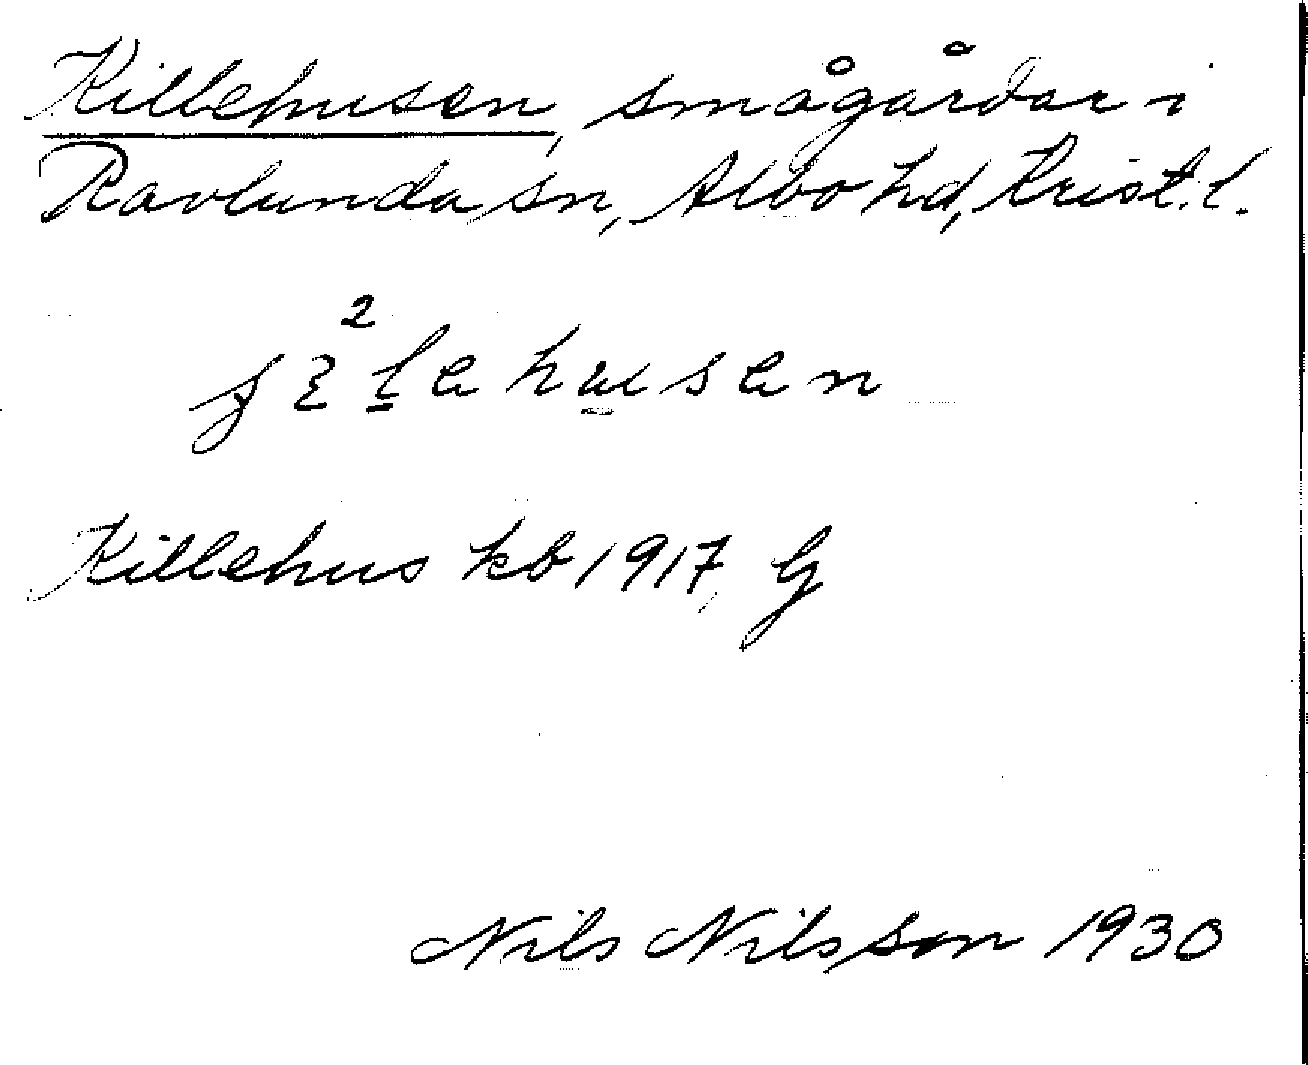 Killehusen, smågårdar i
Ravlunda sn, Albo hd, Krist. l.
Killehus kb 1917, G
Nils Nilsson 1930